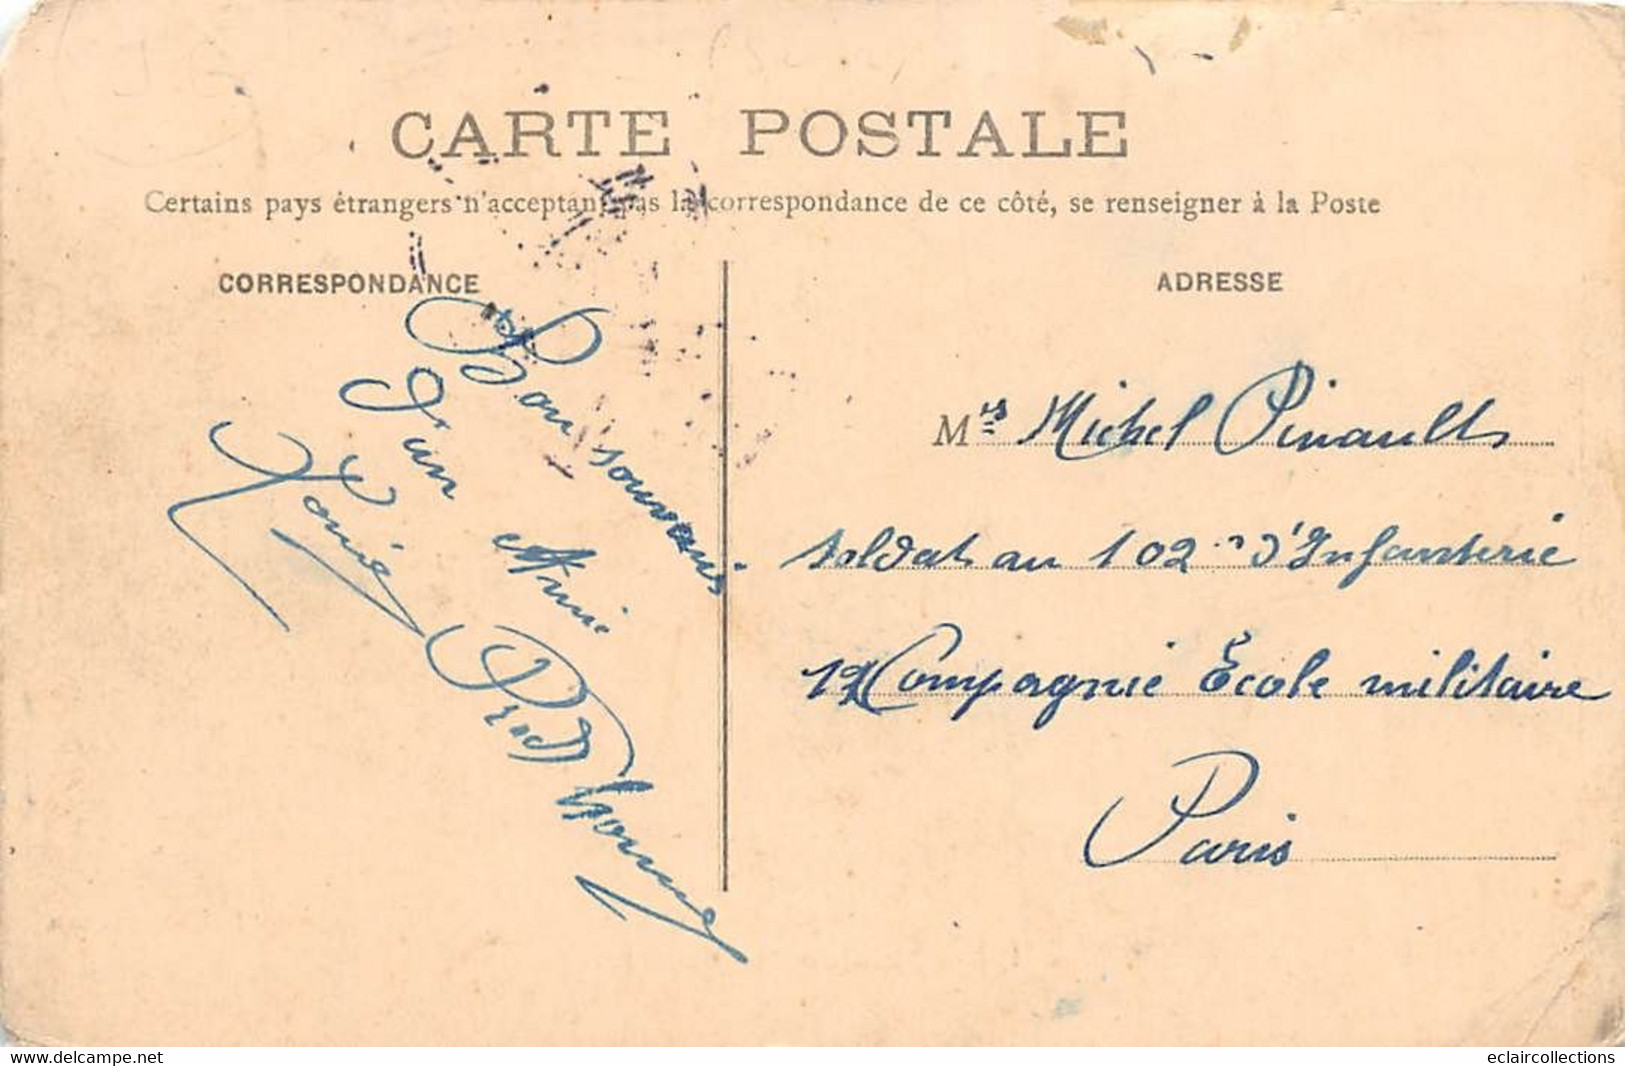 CARTE POSTALE
Certains pays étrangers n'acceptant pas la correspondance de ce côté, se renseigner à la Poste
CORRESPONDANCE
Bon souvenir
d'un Amie
ADRESSE
Mrs Michel Pinault
soldat au 102 d'Infanterie
Compagnie École militaire
Paris
www.delcampe.net
eclaircollections